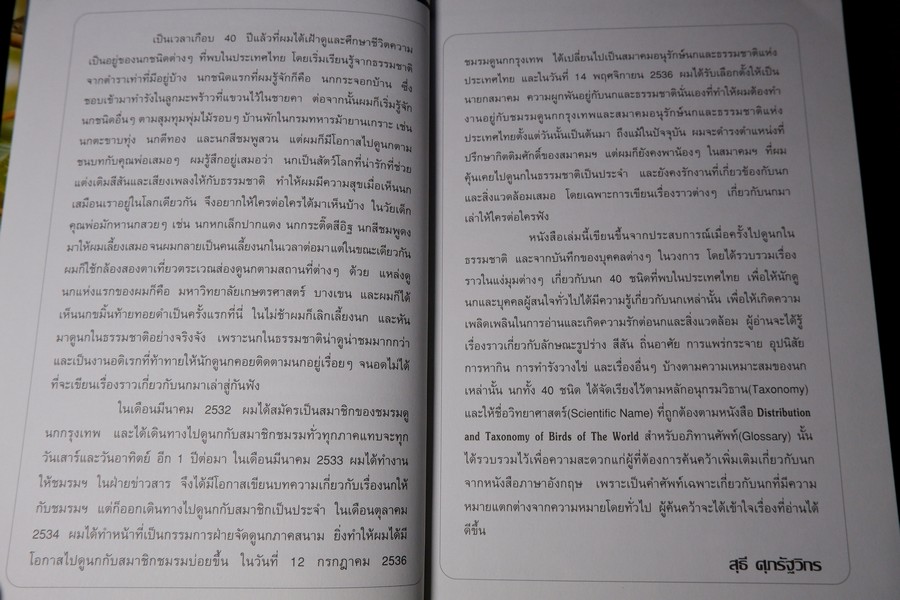 เป็นเวลาเกือบ 40 ปีแล้วที่ผมได้เฝ้าดูและศึกษาชีวิตความ
เป็นอยู่ของนกชนิดต่างๆ ที่พบในประเทศไทย โดยเริ่มเรียนรู้จากธรรมชาติ
จากตำราเท่าที่มีอยู่บ้าง นกชนิดแรกที่ผมรู้จักก็คือ นกกระจอกบ้าน ซึ่ง
ชอบเข้ามาทำรังในลูกมะพร้าวที่แขวนไว้ในชายคา ต่อจากนั้นผมก็เริ่มรู้จัก
นกชนิดอื่นๆ ตามสุมทุมพุ่มไม้รอบๆ บ้านพักในกรมทหารม้ายานเกราะ เช่น
นกตะขาบทุ่ง นกตีทอง และนกสีชมพูสวน แต่ผมก็มีโอกาสไปดูนกตาม
ชนบทกับคุณพ่อเสมอๆ ผมรู้สึกอยู่เสมอว่า นกเป็นสัตว์โลกที่น่ารักที่ช่วย
แต่งเติมสีสันและเสียงเพลงให้กับธรรมชาติ ทำให้ผมมีความสุขเมื่อเห็นนก
เสมือนเราอยู่ในโลกเดียวกัน จึงอยากให้ใครต่อใครได้มาเห็นบ้าง ในวัยเด็ก
คุณพ่อมักหานกสวยๆ เช่น นกหกเล็กปากแดง นกกระติ๊ดสีอิฐ นกสีชมพูดง
มาให้ผมเลี้ยงเสมอจนผมกลายเป็นคนเลี้ยงนกในเวลาต่อมาแต่ในขณะเดียวกัน
ผมก็ใช้กล้องสองตาเที่ยวตระเวณส่องดูนกตามสถานที่ต่างๆ ด้วย แหล่งดู
นกแห่งแรกของผมก็คือ มหาวิทยาลัยเกษตรศาสตร์ บางเขน และผมก็ได้
เห็นนกขมิ้นท้ายทอยดำเป็นครั้งแรกที่นี่ ในไม่ช้าผมก็เลิกเลี้ยงนก และหัน
มาดูนกในธรรมชาติอย่างจริงจัง เพราะนกในธรรมชาติน่าดูน่าชมมากกว่า
และเป็นงานอดิเรกที่ท้าทายให้นักดูนกคอยติดตามนกอยู่เรื่อยๆ จนอดไม่ได้
ที่จะเขียนเรื่องราวเกี่ยวกับนกมาเล่าสู่กันฟัง
ในเดือนมีนาคม 2532 ผมได้สมัครเป็นสมาชิกของชมรมดู
นกกรุงเทพ และได้เดินทางไปดูนกกับสมาชิกชมรมทั่วทุกภาคแทบจะทุก
วันเสาร์และวันอาทิตย์ อีก 1 ปีต่อมา ในเดือนมีนาคม 2533 ผมได้ทำงาน
ให้ชมรมฯ ในฝ่ายข่าวสาร จึงได้มีโอกาสเขียนบทความเกี่ยวกับเรื่องนกให้
กับชมรมฯ แต่ก็ออกเดินทางไปดูนกกับสมาชิกเป็นประจำ ในเดือนตุลาคม
2534 ผมได้ทำหน้าที่เป็นกรรมการฝ่ายจัดดูนกภาคสนาม ยิ่งทำให้ผมได้มี
โอกาสไปดูนกกับสมาชิกชมรมบ่อยขึ้น ในวันที่ 12 กรกฎาคม 2536
ชมรมดูนกกรุงเทพ ได้เปลี่ยนไปเป็นสมาคมอนุรักษ์นกและธรรมชาติแห่ง
ประเทศไทย และในวันที่ 14 พฤศจิกายน 2536 ผมได้รับเลือกตั้งให้เป็น
นายกสมาคม ความผูกพันอยู่กับนกและธรรมชาตินั่นเองที่ทำให้ผมต้องทำ
งานอยู่กับชมรมดูนกกรุงเทพและสมาคมอนุรักษ์นกและธรรมชาติแห่ง
ประเทศไทยตั้งแต่วันนั้นเป็นต้นมา ถึงแม้ในปัจจุบัน ผมจะดำรงตำแหน่งที่
ปรึกษากิตติมศักดิ์ของสมาคมฯ แต่ผมก็ยังคงพาน้องๆ ในสมาคมฯ ที่ผม
คุ้นเคยไปดูนกในธรรมชาติเป็นประจำ และยังคงรักงานที่เกี่ยวข้องกับนก
และสิ่งแวดล้อมเสมอ โดยเฉพาะการเขียนเรื่องราวต่างๆ เกี่ยวกับนกมา
เล่าให้ใครต่อใครฟัง
หนังสือเล่มนี้เขียนขึ้นจากประสบการณ์เมื่อครั้งไปดูนกใน
ธรรมชาติ และจากบันทึกของบุคคลต่างๆ ในวงการ โดยได้รวบรวมเรื่อง
ราวในแง่มุมต่างๆ เกี่ยวกับนก 40 ชนิดที่พบในประเทศไทย เพื่อให้นักดู
นกและบุคคลผู้สนใจทั่วไปได้มีความรู้เกี่ยวกับนกเหล่านั้น เพื่อให้เกิดความ
เพลิดเพลินในการอ่านและเกิดความรักต่อนกและสิ่งแวดล้อม ผู้อ่านจะได้รู้
เรื่องราวเกี่ยวกับลักษณะรูปร่าง สีสัน ถิ่นอาศัย การแพร่กระจาย อุปนิสัย
การหากิน การทำรังวางไข่ และเรื่องอื่นๆ บ้างตามความเหมาะสมของนก
เหล่านั้น นกทั้ง 40 ชนิด ได้จัดเรียงไว้ตามหลักอนุกรมวิธาน(Taxonomy)
และให้ชื่อวิทยาศาสตร์(Scientific Name) ที่ถูกต้องตามหนังสือ Distribution
and Taxonomy of Birds of The World สำหรับอภิทานศัพท์(Glossary) นั้น
ได้รวบรวมไว้เพื่อความสะดวกแก่ผู้ที่ต้องการค้นคว้าเพิ่มเติมเกี่ยวกับนก
จากหนังสือภาษาอังกฤษ เพราะเป็นคำศัพท์เฉพาะเกี่ยวกับนกที่มีความ
หมายแตกต่างจากความหมายโดยทั่วไป ผู้ค้นคว้าจะได้เข้าใจเรื่องที่อ่านได้
ดีขึ้น
สุธี ศุภรัฐวิกร